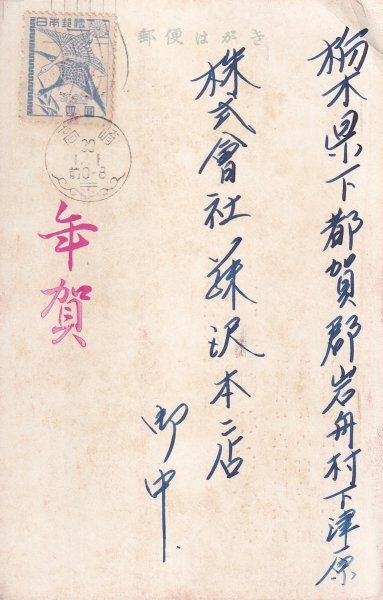 郵便はがき
日本郵便
栃木県下都賀郡岩舟村下津原
株式會社 沢本店
御中
年賀
30
1.1
前0-8